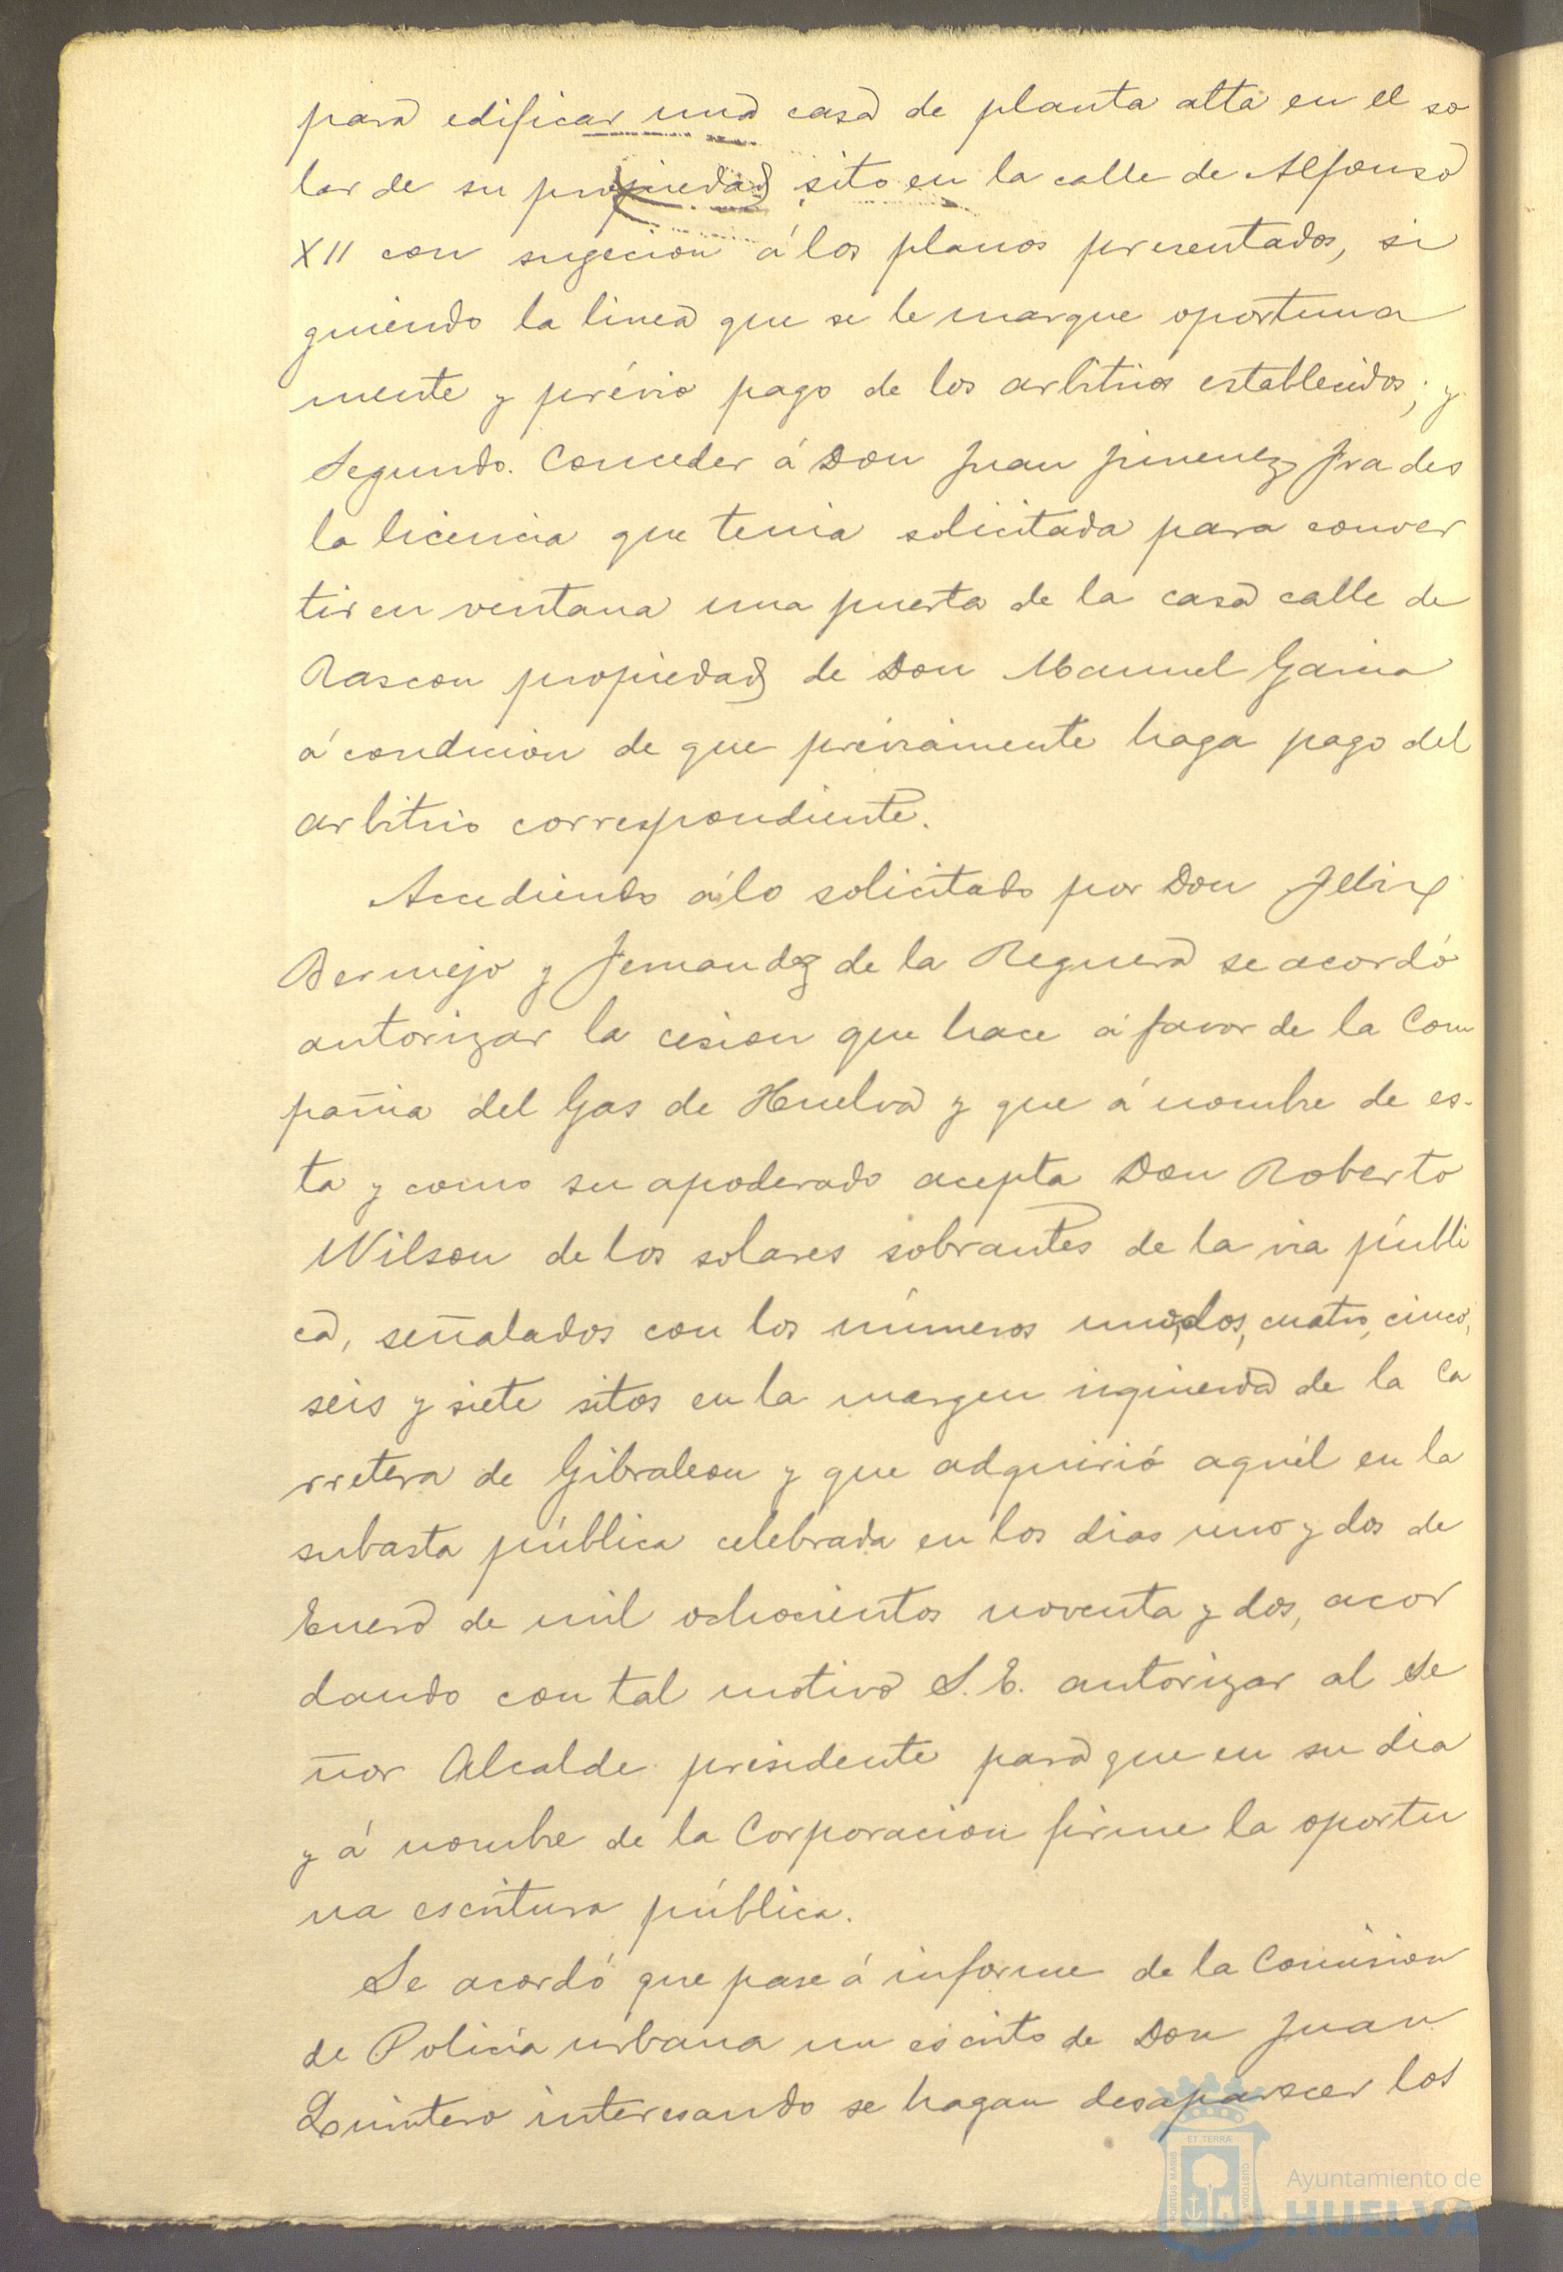 para edificar una casa de planta alta en el so
lar de su propiedad sito en la calle de Alfonso
XII con sugecion á los planos presentados, si
guiendo la linea que se le marque oportuna
mente y prévio pago de los arbitrios establecidos; y
Segundo. Conceder á Don Juan Jimenez Frades
la licencia que tenia solicitada para conver
tir en ventana una puerta de la casa calle de
Rascon propiedad de Don Manuel Garcia
á condicion de que préviamente haga pago del
arbitrio correspondiente.
Accediendo á lo solicitado por Don Felix
Bermejo y Fernandez de la Reguera se acordó
autorizar la cesion que hace á favor de la Com
pañia del Gas de Huelva y que á nombre de es-
ta y como su apoderado acepta Don Roberto
Wilson de los solares sobrantes de la via públi
ca, señalados con los números uno, dos, cuatro, cinco,
seis y siete sitos en la margen izquierda de la Ca
rretera de Gibraleon y que adquirió aquél en la
subasta pública celebrada en los dias uno y dos de
Enero de mil ochocientos noventa y dos, acor
dando con tal motivo S. E. autorizar al Se
ñor Alcalde presidente para que en su dia
y á nombre de la Corporacion firme la oportu
na escritura pública.
Se acordó que pase á informe de la Comision
de Policia urbana un escrito de Don Juan
Quintero interesando se hagan desaparecer los
PORTUS MARIS
ET TERRÆ
CUSTODIA
Ayuntamiento de
HUELVA